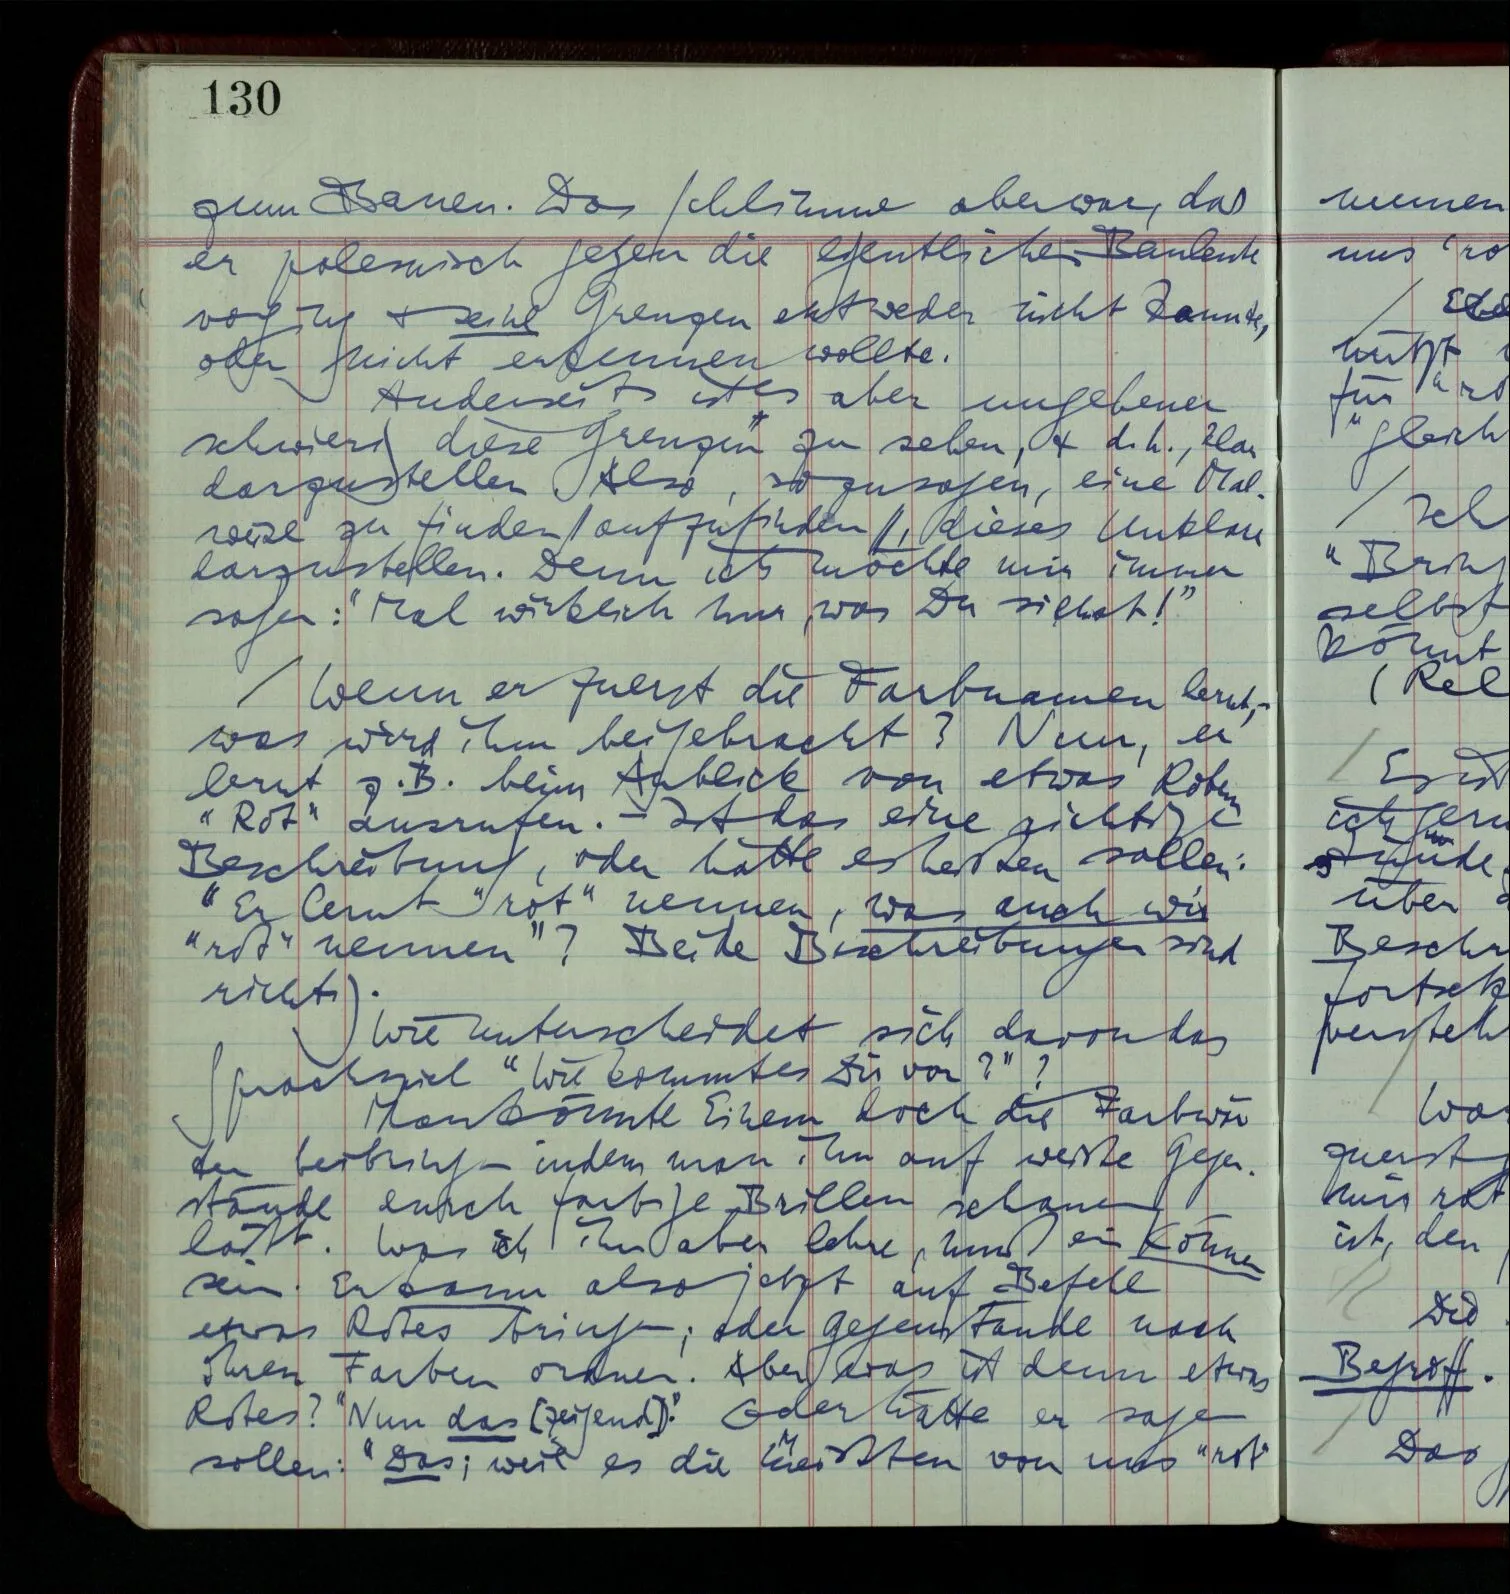 130
zum Bauen. Das schlimme aber war, daß
er polemisch gegen die eigentlichen Bauleute
vorging & seine Grenzen entweder nicht kannte,
oder nicht erkennen wollte.
Anderseits ist es aber ungeheuer
schwierig diese Grenzen zu sehen, & d.h., klar
darzustellen. Also, sozusagen, eine Mal-
weise zu finden /aufzufinden/, dieses Unklare
darzustellen. Denn ich möchte mir immer
sagen: "Mal wirklich nur, was Du siehst!"
/ Wenn er zuerst die Farbnamen lernt, –
was wird ihm beigebracht? Nun, er
lernt z.B. beim Anblick von etwas Rotem
"Rot" ausrufen. – Ist das eine richtige
Beschreibung, oder hätte es heißen sollen:
"Er lernt "rot" nennen, was auch wir
"rot" nennen"? Beide Beschreibungen sind
richtig.
Wie unterscheidet sich davon das
Sprachspiel "Wie kommt es Dir vor?"?
Man könnte Einem doch die Farbwör
ter beibringen indem man ihn auf weiße Gegen-
stände durch farbige Brillen schauen
läßt. Was ich ihn aber lehre, muß ein Können
sein. Er kann also jetzt auf Befehl
etwas Rotes bringen; oder Gegenstände nach
ihren Farben ordnen. Aber was ist denn etwas
Rotes? "Nun das [zeigend]." Oder hätte er sagen
sollen: "Das; weil es die Meisten von uns "rot"
nennen
uns "ro
/
nützt
für "ro
"gleich
/ Ich
"Bring
selbst
könnt
(Rel
/ Es ist
ich gern
über
Beschr
fortsetz
versteh
/ Wa
zuerst
mir rot
ist, den
Die
Begriff.
/ Das